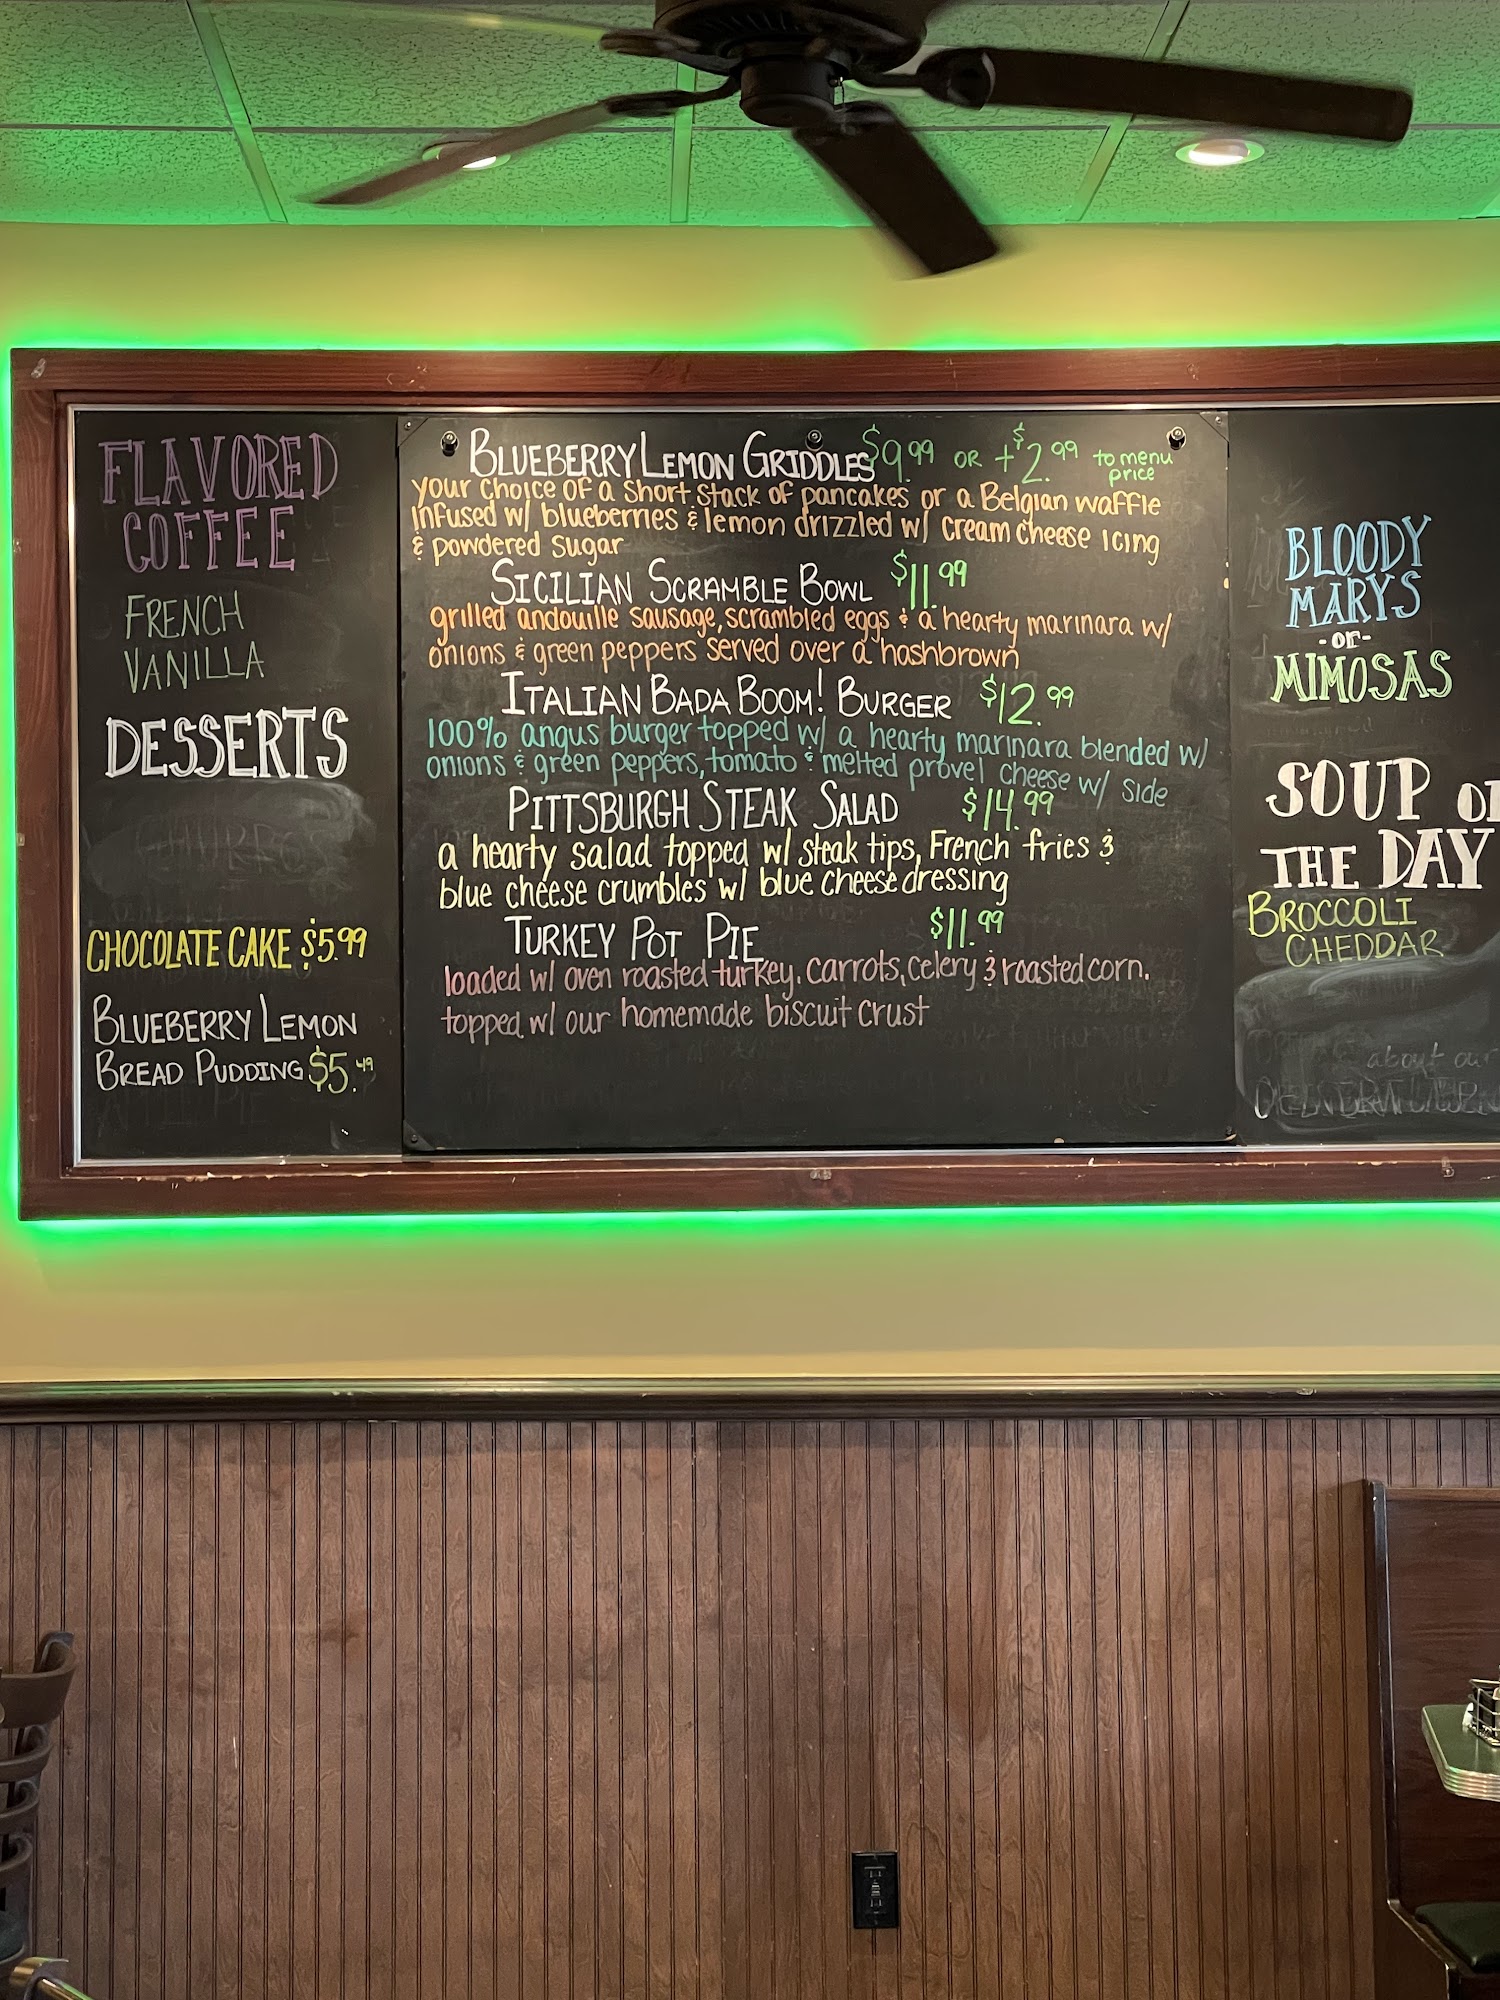 FLAVORED
COFFEE
FRENCH
VANILLA
DESSERTS
CHOCOLATE CAKE $5.99
BLUEBERRY LEMON
BREAD PUDDING $5.49
BLUEBERRY LEMON GRIDDLES $9.99 OR +$2.99 to menu
price
your choice of a short stack of pancakes or a Belgian waffle
infused w/ blueberries & lemon drizzled w/ cream cheese icing
& powdered sugar
SICILIAN SCRAMBLE BOWL $11.99
grilled andouille sausage, scrambled eggs & a hearty marinara w/
onions & green peppers served over a hashbrown
ITALIAN BADA BOOM! BURGER $12.99
100% angus burger topped w/ a hearty marinara blended w/
onions & green peppers, tomato & melted provel cheese w/ side
PITTSBURGH STEAK SALAD $14.99
a hearty salad topped w/ steak tips, French fries &
blue cheese crumbles w/ blue cheese dressing
TURKEY POT PIE $11.99
loaded w/ oven roasted turkey, carrots, celery & roasted corn.
topped w/ our homemade biscuit crust
BLOODY
MARYS
-or-
MIMOSAS
SOUP
THE DAY
BROCCOLI
CHEDDAR
about